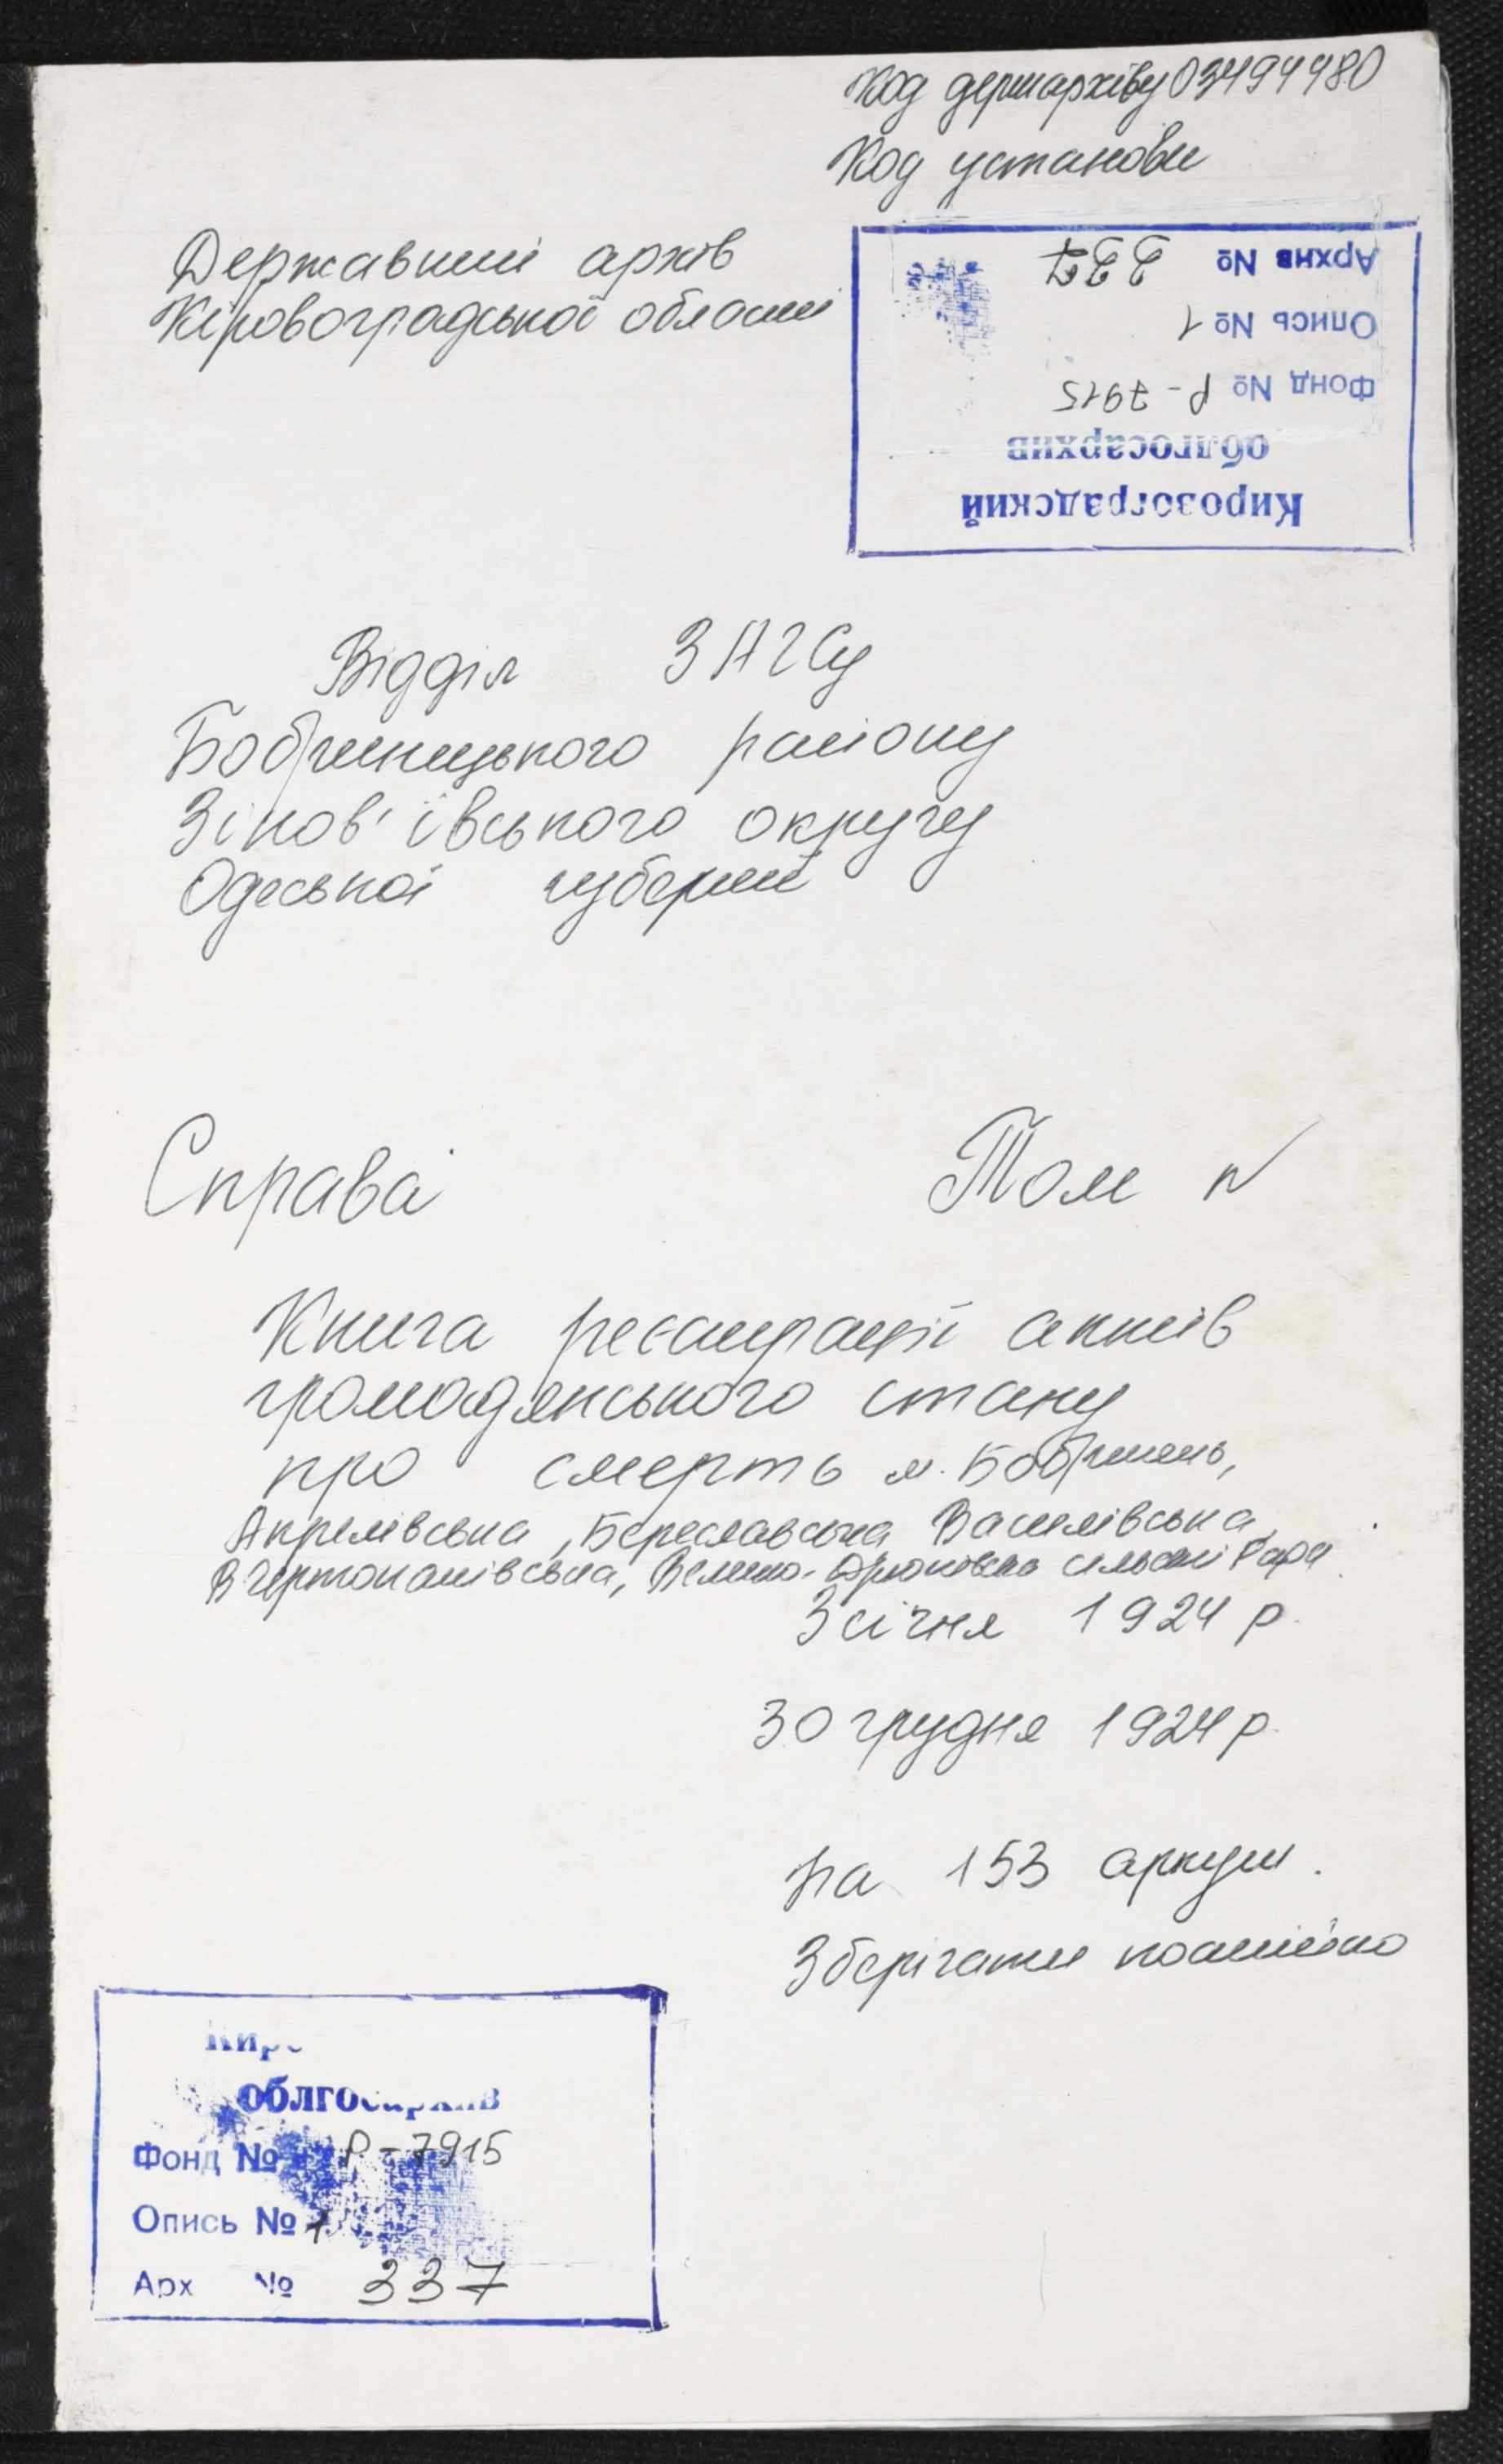 Код держархіву 03494480
Код установи
Державний архів
Кіровоградської області
Архив № 337
Опись № 1
Фонд № Р-7915
облгосархив
Кировоградский
Відділ ЗАГСу
Бобринецького району
Зінов'ївського округу
Одеської губернії
Справа Том №
Книга реєстрації актів
громадянського стану
про смерть м. Бобринець,
Акрелівська, Береславська, Василівська,
Велико- сільські Рада
3 січня 1924 р.
30 грудня 1924 р.
На 153 аркуш.
Зберігати постійно
Кир
облгосархив
Фонд № Р-7915
Опись № 1
Арх № 337